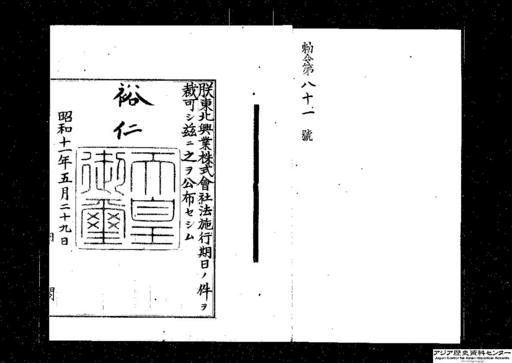 勅令第八十一號
朕東北興業株式會社法施行期日ノ件ヲ
裁可シ茲ニ之ヲ公布セシム
裕仁
天皇
御璽
昭和十一年五月二十九日
アジア歴史資料センター
Japan Center for Asian Historical Records